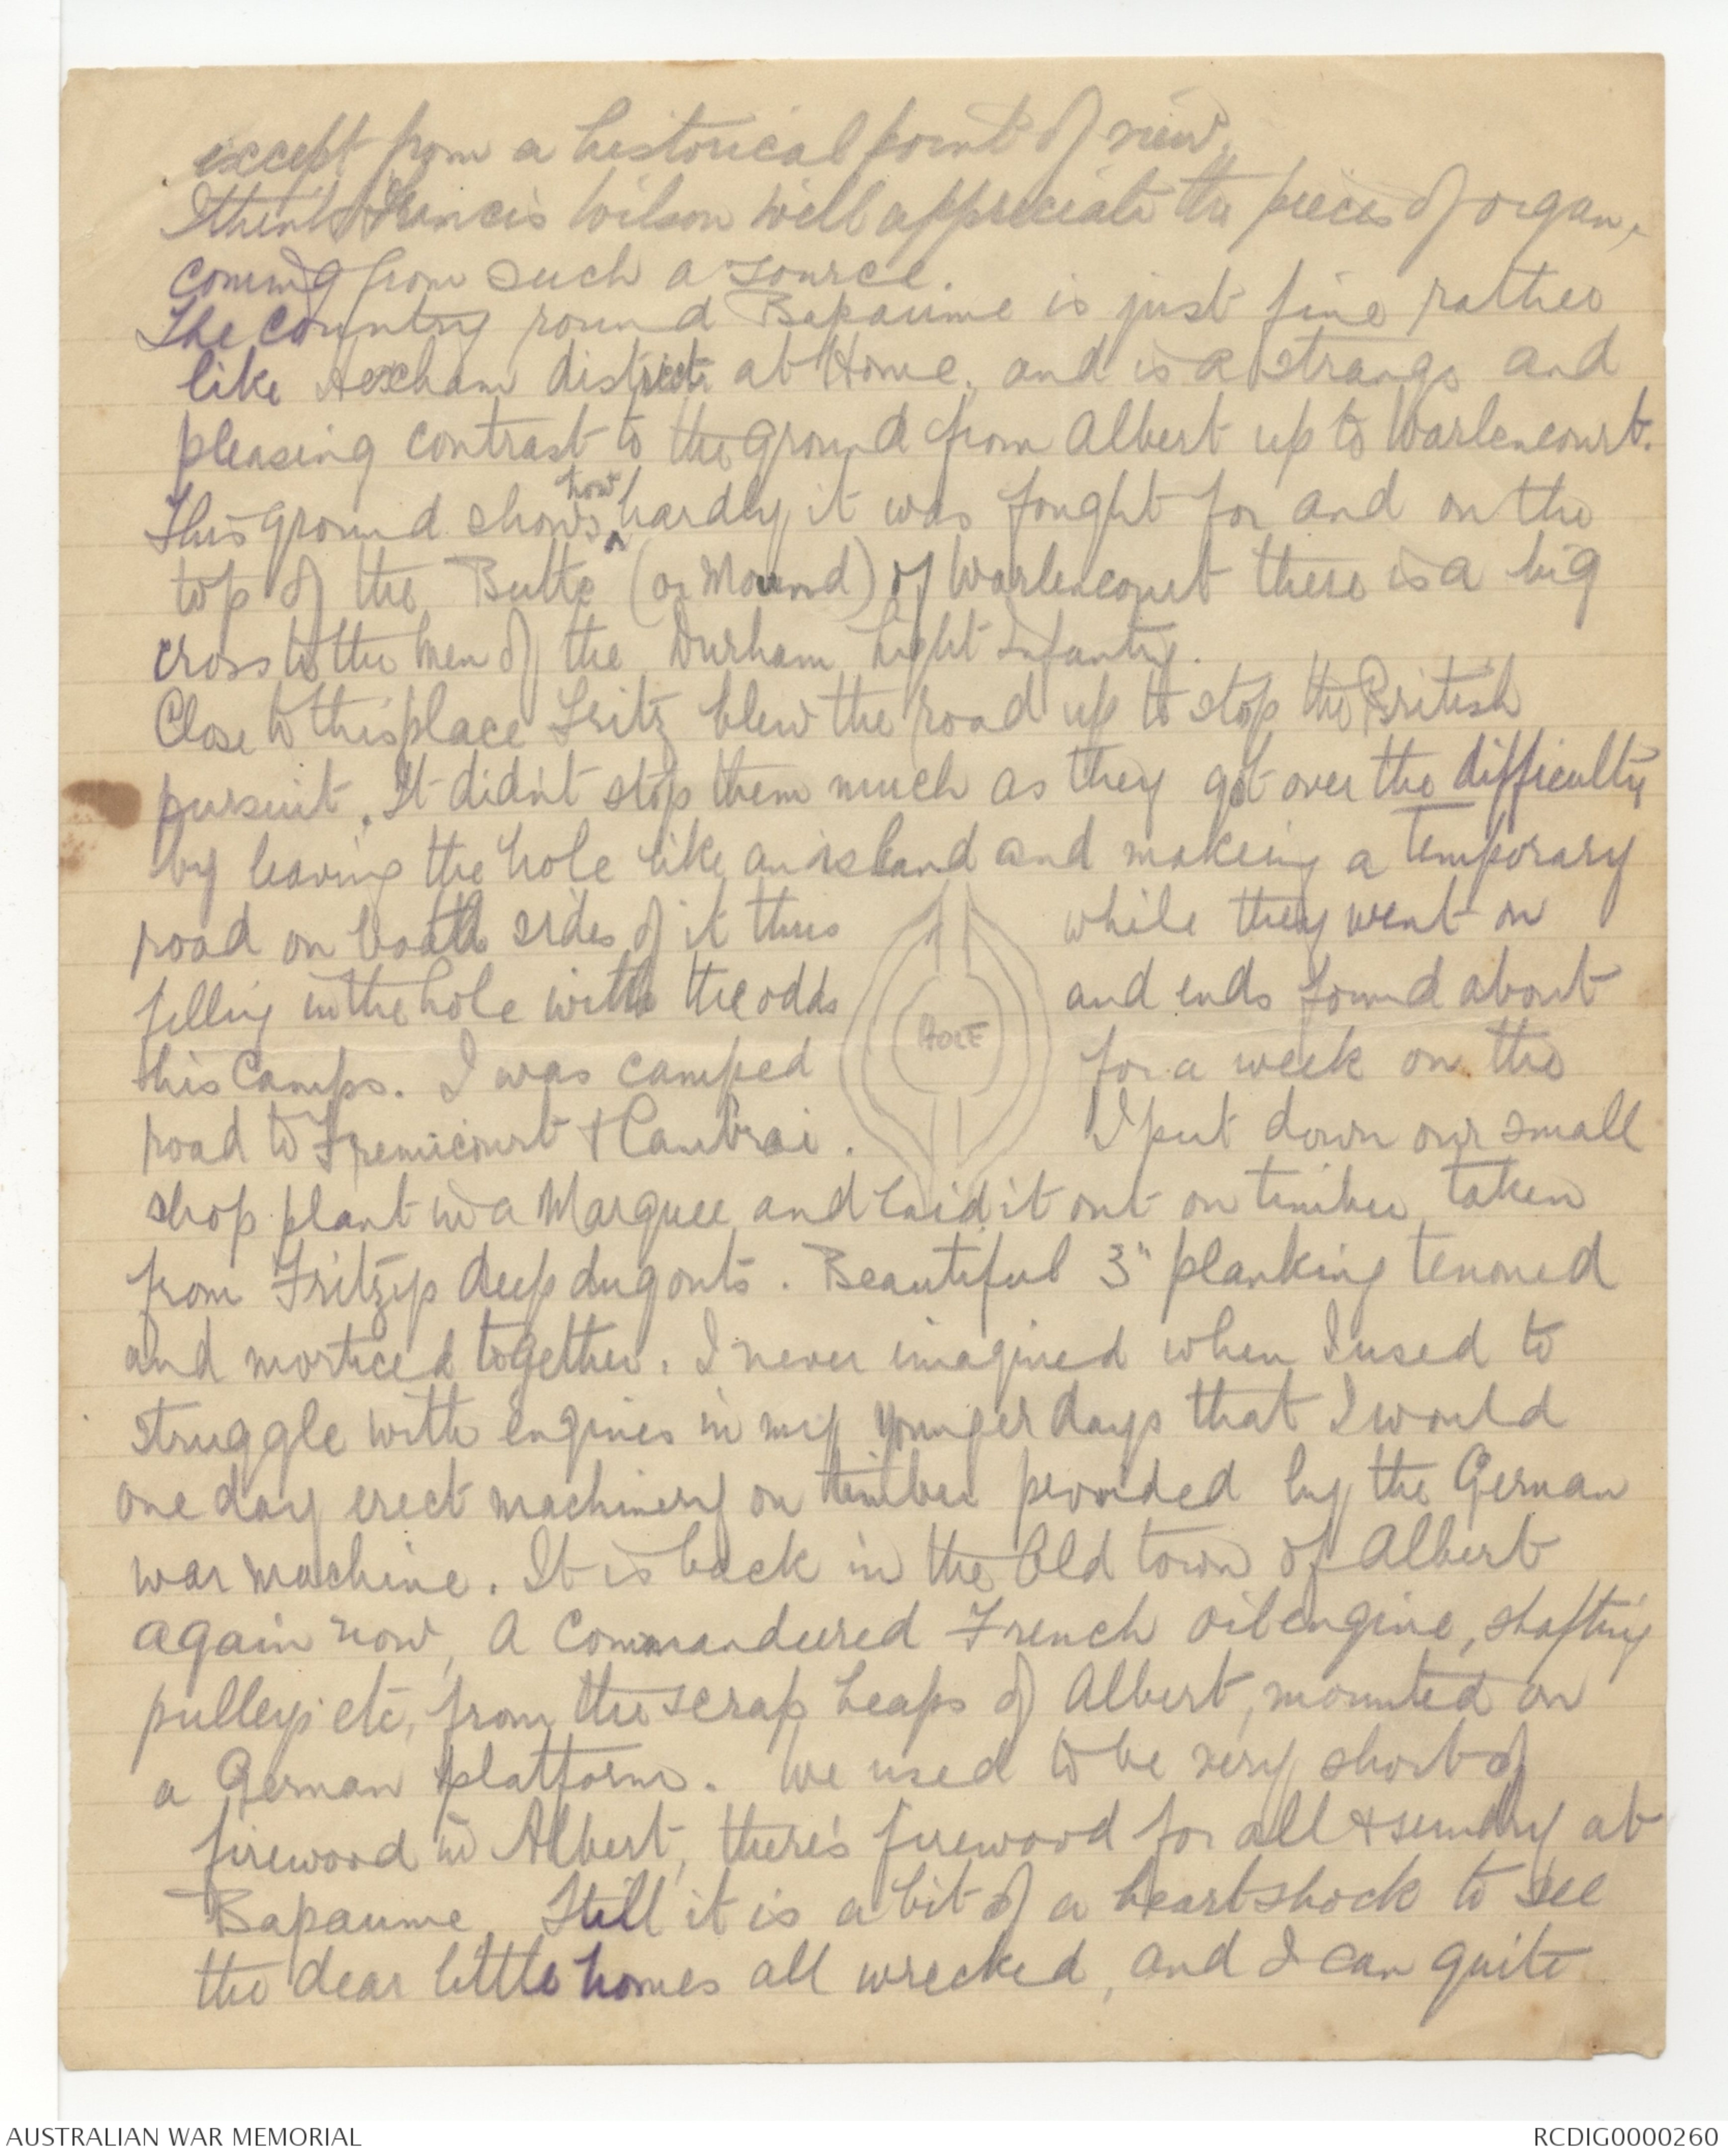 except from a historical point of view.
I think Francis Wilson will appreciate the pieces of organ,
coming from such a source.
The country round Bapaume is just fine rather
like Hexham district at Home, and is a strange and
pleasing contrast to the ground from Albert up to Warlencourt.
This ground shows how hardly it was fought for and on the
top of the Butte (or Mound) of Warlencourt there is a big
cross to the men of the Durham Light Infantry.
Close to this place Fritz blew the road up to stop the British
pursuit. It didn't stop them much as they got over the difficulty
by leaving the hole like an island and makeing a temporary
road on both sides of it thus while they went on
filling in the hole with the odds and ends found about
this Camps. I was camped for a week on the
road to Fremicourt & Cambrai. I put down our small
HOLE
shop plant in a Marquee and laid it out on timber taken
from Fritzys deep dugouts. Beautiful 3" planking tenoned
and morticed together. I never imagined when I used to
struggle with engines in my younger days that I would
one day erect machinery on timber provided by the German
war machine. It is back in the Old town of Albert
again now, A Commandeered French oil engine, shafting
pulleys etc, from the scrap heaps of Albert, mounted on
a German platform. We used to be very short of
firewood in Albert, there's firewood for all & sundry at
Bapaume. Still it is a bit of a heartshock to see
the dear little homes all wrecked, and I can quite
AUSTRALIAN WAR MEMORIAL
RCDIG0000260